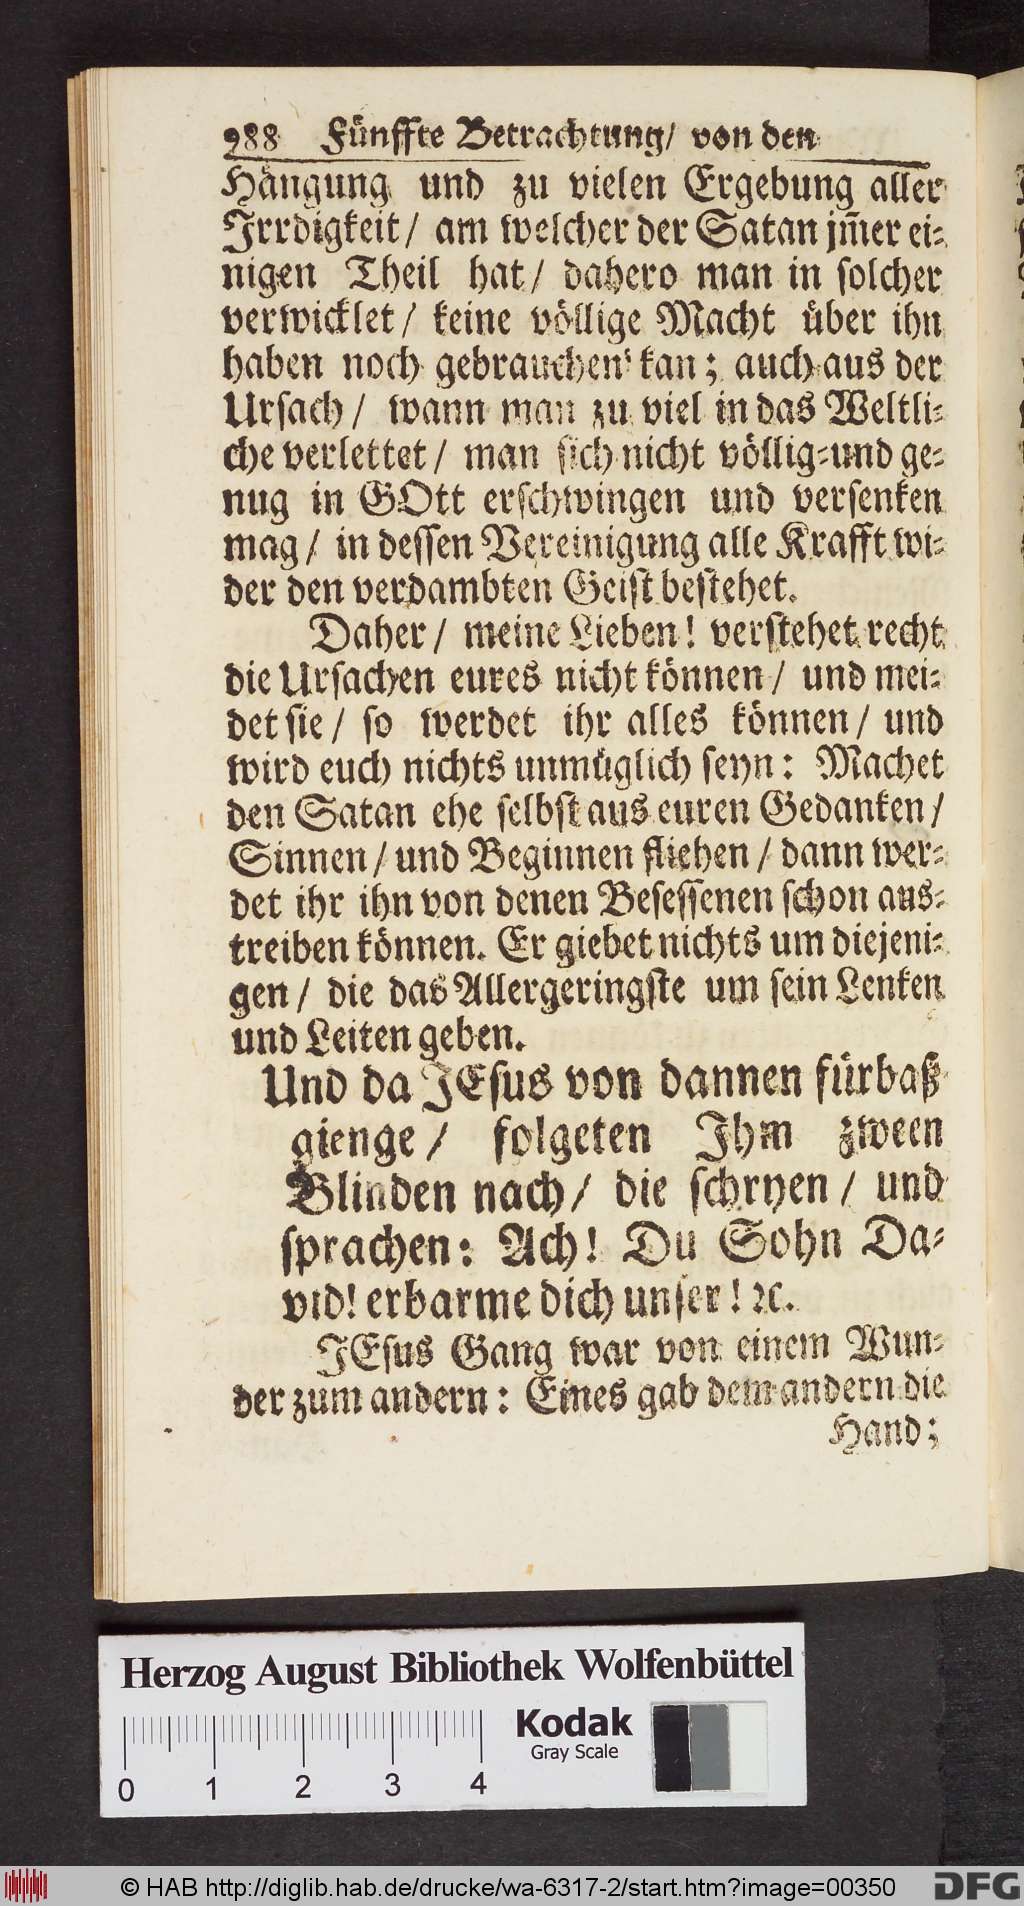 988 Fünffte Betrachtung/ von den
Hängung und zu vielen Ergebung aller
Irrdigkeit/ am welcher der Satan jm̄er ei-
nigen Theil hat/ dahero man in solcher
verwicklet/ keine völlige Macht über ihn
haben noch gebrauchen kan; auch aus der
Ursach/ wann man zu viel in das Weltli-
che verlettet/ man sich nicht völlig-und ge-
nug in GOtt erschwingen und versenken
mag/ in dessen Vereinigung alle Krafft wi-
der den verdambten Geist bestehet.
Daher/ meine Lieben! verstehet recht
die Ursachen eures nicht können/ und mei-
det sie/ so werdet ihr alles können/ und
wird euch nichts unmüglich seyn: Machet
den Satan ehe selbst aus euren Gedanken/
Sinnen/ und Beginnen fliehen/ dann wer-
det ihr ihn von denen Besessenen schon aus-
treiben können. Er giebet nichts um diejeni-
gen/ die das Allergeringste um sein Lenken
und Leiten geben.
Und da JEsus von dannen fürbaß
gienge/ folgeten Ihm zween
Blinden nach/ die schryen/ und
sprachen: Ach! Du Sohn Da-
vid! erbarme dich unser! ꝛc.
JEsus Gang war von einem Wun-
der zum andern: Eines gab dem andern die
Hand;
Herzog August Bibliothek Wolfenbüttel
Kodak
Gray Scale
0 1 2 3 4
© HAB http://diglib.hab.de/drucke/wa-6317-2/start.htm?image=00350
DFG